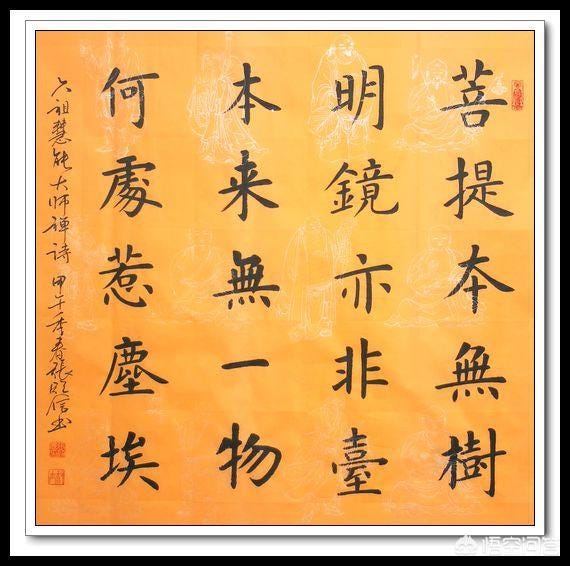 菩提本無樹
明鏡亦非臺
本来無一物
何處惹塵埃
六祖慧能大师禅诗 甲午季春张信书
悟空问答